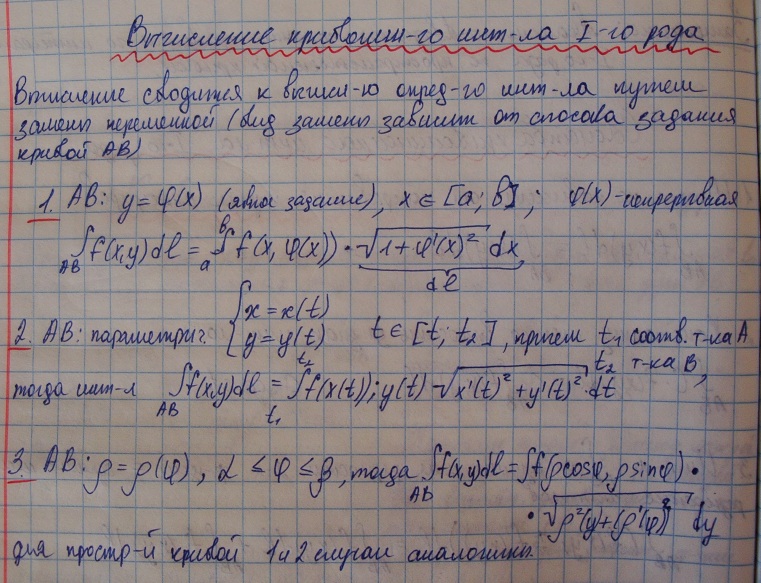 Вычисление криволин-го инт-ла I-го рода
Вычисление сводится к вычисл-ю опред-го инт-ла путем
замены переменной (вид замены зависит от способа задания
кривой AB)
1. AB: y = φ(x) (явное задание), x ∈ [a; b]; φ(x) - непрерывная
∫_{AB} f(x,y)dl = ∫_a^b f(x, φ(x)) · √(1+φ'(x)²) dx
dl
2. AB: параметрич. { x = x(t)
y = y(t) t ∈ [t; t₂], причем t₁ соотв. т-ка A
t₂ т-ка B,
тогда инт-л ∫_{AB} f(x,y)dl = ∫_{t₁}^{t₂} f(x(t)); y(t) √(x'(t)² + y'(t)²) · dt
3. AB: ρ = ρ(φ), α ≤ φ ≤ β, тогда ∫_{AB} f(x,y)dl = ∫f(ρcosφ, ρsinφ) ·
· √(ρ²(y)+(ρ'(φ))²) dy
для простр-й кривой 1 и 2 случаи аналогичны.